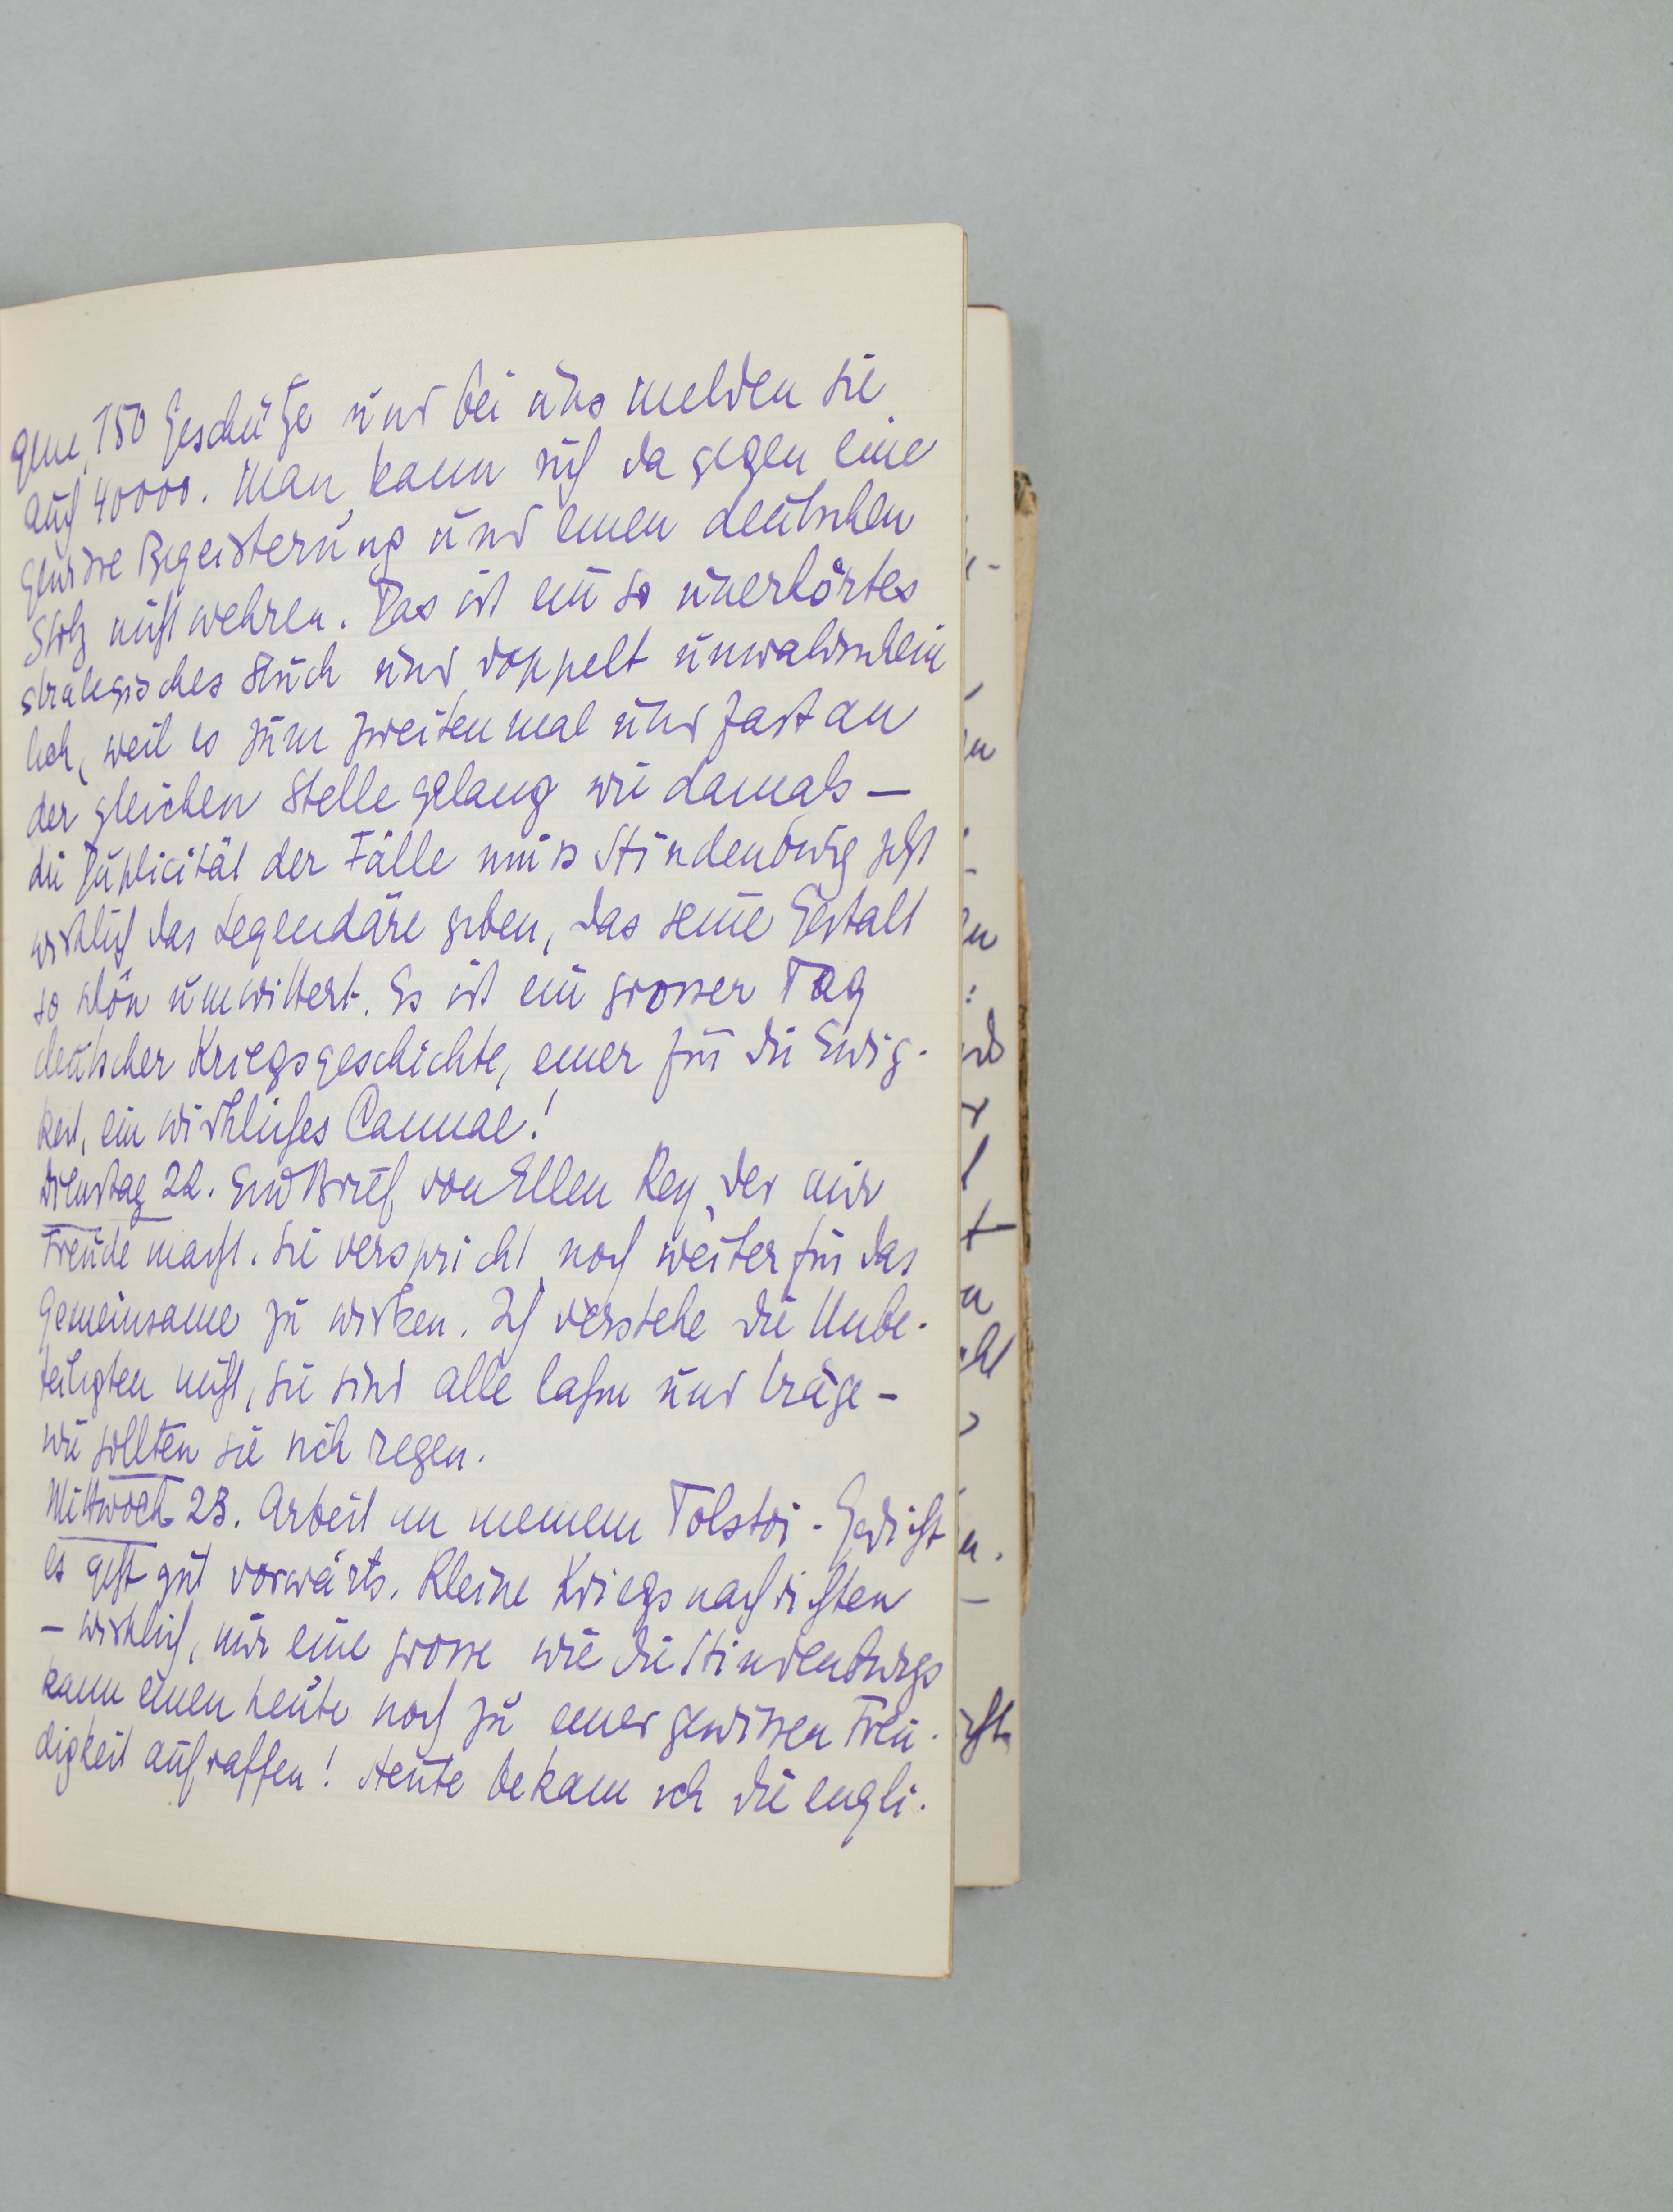 gene, 150 Geschütze und bei uns melden sie
auch 40000. Man kann sich da gegen eine
gewisse Begeisterung und einen deutschen
Stolz nicht wehren. Das ist ein so unerhörtes
strategisches Stück und doppelt unwahrschein
lich, weil es zum zweiten mal und fast an
der gleichen Stelle gelang wie damals –
die Duplicität der Fälle muss Hindenburg jetzt
wirklich das Legendäre geben, das seine Gestalt
so schön umwittert. Es ist ein grosser Tag
deutscher Kriegsgeschichte, einer für die Ewig-
keit, ein wirkliches Cannae!
Dienstag 22. Ein Brief von Ellen Key, der mir
Freude macht. Sie verspricht noch weiter für das
Gemeinsame zu wirken. Ich verstehe die Unbe-
teiligten nicht, sie sind alle lahm und träge –
wie sollten sie sich regen.
Mittwoch 23. Arbeit an meinem Tolstoi-Gedicht
es geht gut vorwärts. Kleine Kriegsnachrichten
– wirklich, nur eine grosse wie die Hindenburgs
kann einen heute noch zu einer gewissen Freu-
digkeit aufraffen! Heute bekam ich die engli-